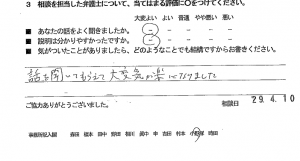 3 相談を担当した弁護士について、当てはまる評価に○をつけてください。
大変よい よい 普通 やや悪い 悪い
■ あなたの話をよく聞きましたか。
■ 説明は分かりやすかったですか。
■ 気がついたことがありましたら、どのようなことでも結構ですからお書きください。
話を聞いてもらえて大変気が楽になりました
ご協力ありがとうございました。
相談日 29.4.10
事務所記入欄 春田 福本 田中 野田 相川 眞中 中 吉田 村本 小 時田